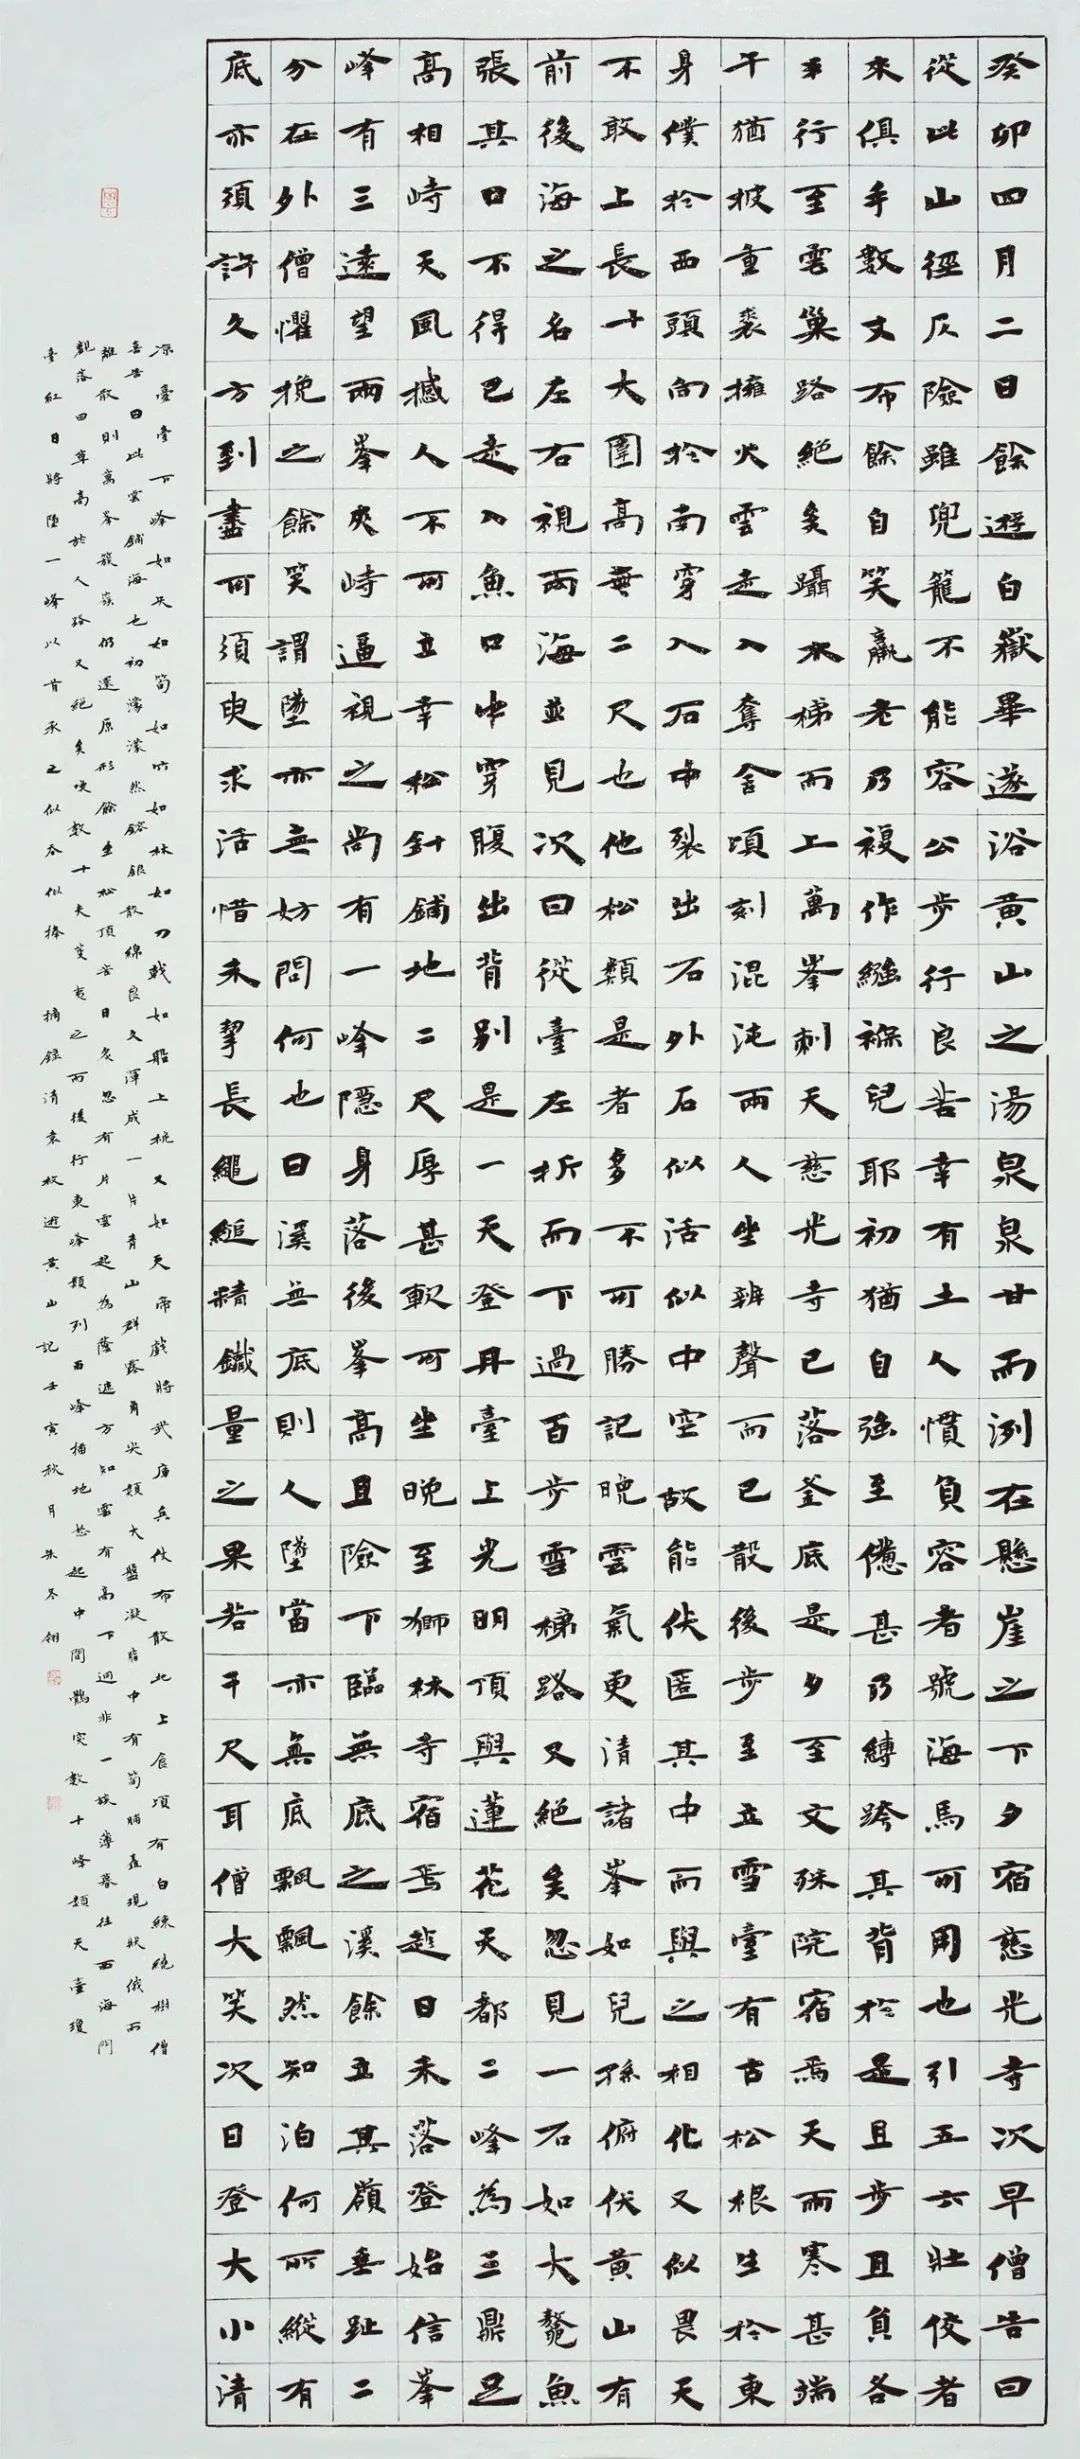 癸卯四月二日餘遊白嶽畢遂浴黃山之湯泉泉甘而洌在懸崖之下夕宿慈光寺次早僧告曰
從此山徑仄險雖兜籠不能容公步行良苦幸有土人慣負容者號海馬可用也引五六壯佼者
來俱手數丈布餘自笑羸老乃複作繈褓兒耶初猶自強至憊甚乃縛跨其背於是且步且負各
半行至雲巢路絕矣躡木梯而上萬峯刺天慈光寺已落釜底是夕至文殊院宿焉天雨寒甚端
午猶披重裘擁火雲走入奪舍頃刻混沌兩人坐辨聲而已散後步至立雪臺有古松根生於東
身僕於西頭向於南穿入石中裂出石外石似活似中空故能伏匿其中而與之相化又似畏天
不敢上長十大圍高無二尺也他松類是者多不可勝記晚雲氣更清諸峯如兒孫俯伏黃山有
前後海之名左右視兩海並見次日從臺左折而下過百步雲梯路又絕矣忽見一石如大鰲魚
張其口不得已走入魚口中穿腹出背別是一天登丹臺上光明頂與蓮花天都二峰為三鼎足
高相峙天風撼人不可立幸松針鋪地二尺厚甚軟可坐晚至獅林寺宿焉趁日未落登始信峯
峰有三遠望兩峯夾峙逼視之尚有一峰隱身落後峯高且險下臨無底之溪餘立其巔垂趾二
分在外僧懼挽之餘笑謂墜亦無妨問何也曰溪無底則人墜當亦無底飄飄然知泊何所縱有
底亦須許久方到盡可須臾求活惜未挈長繩縋精鐵量之果若干尺耳僧大笑次日登大小清
涼臺臺下峰如矢如筍如竹如林如刀戟如船上桅又如天帝戲將武庫兵仗布散地上食頃有白練繞樹僧
喜告曰此雲鋪海也初濛濛然鎔銀散綿良久渾成一片青山群露角尖類大盤凝脂中有筍脯矗現狀俄而
離散則萬峯簇簇仍還原形餘坐松頂苦日炙忽有片雲起為蔭遮方知雲有高下迥非一族薄暮往西海門
觀落日草高於人路又絕矣喚數十夫芟夷之而後行東峰類列西峰插地怒起中間鶻突數十峰類天臺瓊
臺紅日將墜一峰以首承之似吞似捧 摘錄清袁枚遊黃山記壬寅秋月朱冬翎